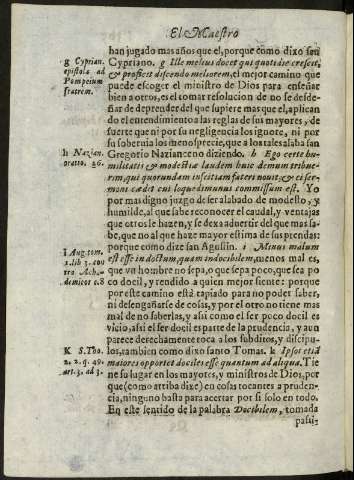 El Maestro
han jugado mas años que el, porque como dixo san
g Cyprian.
epistola ad
Pompeium
fratrem.
Cypriano. g Ille melius docet qui quotidie crescit,
& proficit discendo meliorem, el mejor camino que
puede escoger el ministro de Dios para enseñar
bien a otros, es el tomar resolucion de no se desde-
ñar de deprender del que supiere mas que el, aplican
do el entendimiento a las reglas de sus mayores, de
suerte que ni por su negligencia los ignore, ni por
su soberuia los menosprecie, que a los tales alaba san
h Nazian.
oratio. 26.
Gregorio Nazianceno diziendo. h Ego certe hu-
militatis & modestiæ laudem huic demum tribue-
rim, qui quorundam inscitiam fateri nouit, & ei ser-
moni cædet cui loquedi munus commissum est. Yo
por mas digno juzgo de ser alabado de modesto, y
humilde, al que sabe reconocer el caudal, y ventajas
que otros le hazen, y se dexa aduertir del que mas sa-
be, que no al que haze mayor estima de sus prendas:
i Aug. tom.
1. lib. 3. con
tra Acha-
demicos c. 8
porque como dize san Agustin. i Minus malum
est esse indoctum, quam indocibilem, menos mal es,
que vn hombre no sepa, o que sepa poco, que sea po
co docil, y rendido a quien mejor siente: porque
por este camino està tapiado para no poder saber,
ni desengañarse de cosas, y por el otro no tiene mas
mal de no saberlas, y asi como el ser poco docil es
vicio, asi el ser docil es parte de la prudencia, y aun
parece derechamente toca a los subditos, y discipu-
K S. Tho.
2. 2. q. 49.
art. 3. ad 3.
los, tambien como dixo santo Tomas. k Ipsos etiā
maiores opportet dociles esse quantum ad aliqua. Tie
ne su lugar en los mayores, y ministros de Dios, por
que (como arriba dixe) en cosas tocantes a pruden-
cia, ninguno basta para acertar por si solo en todo.
En este sentido de la palabra Docibilem, tomada